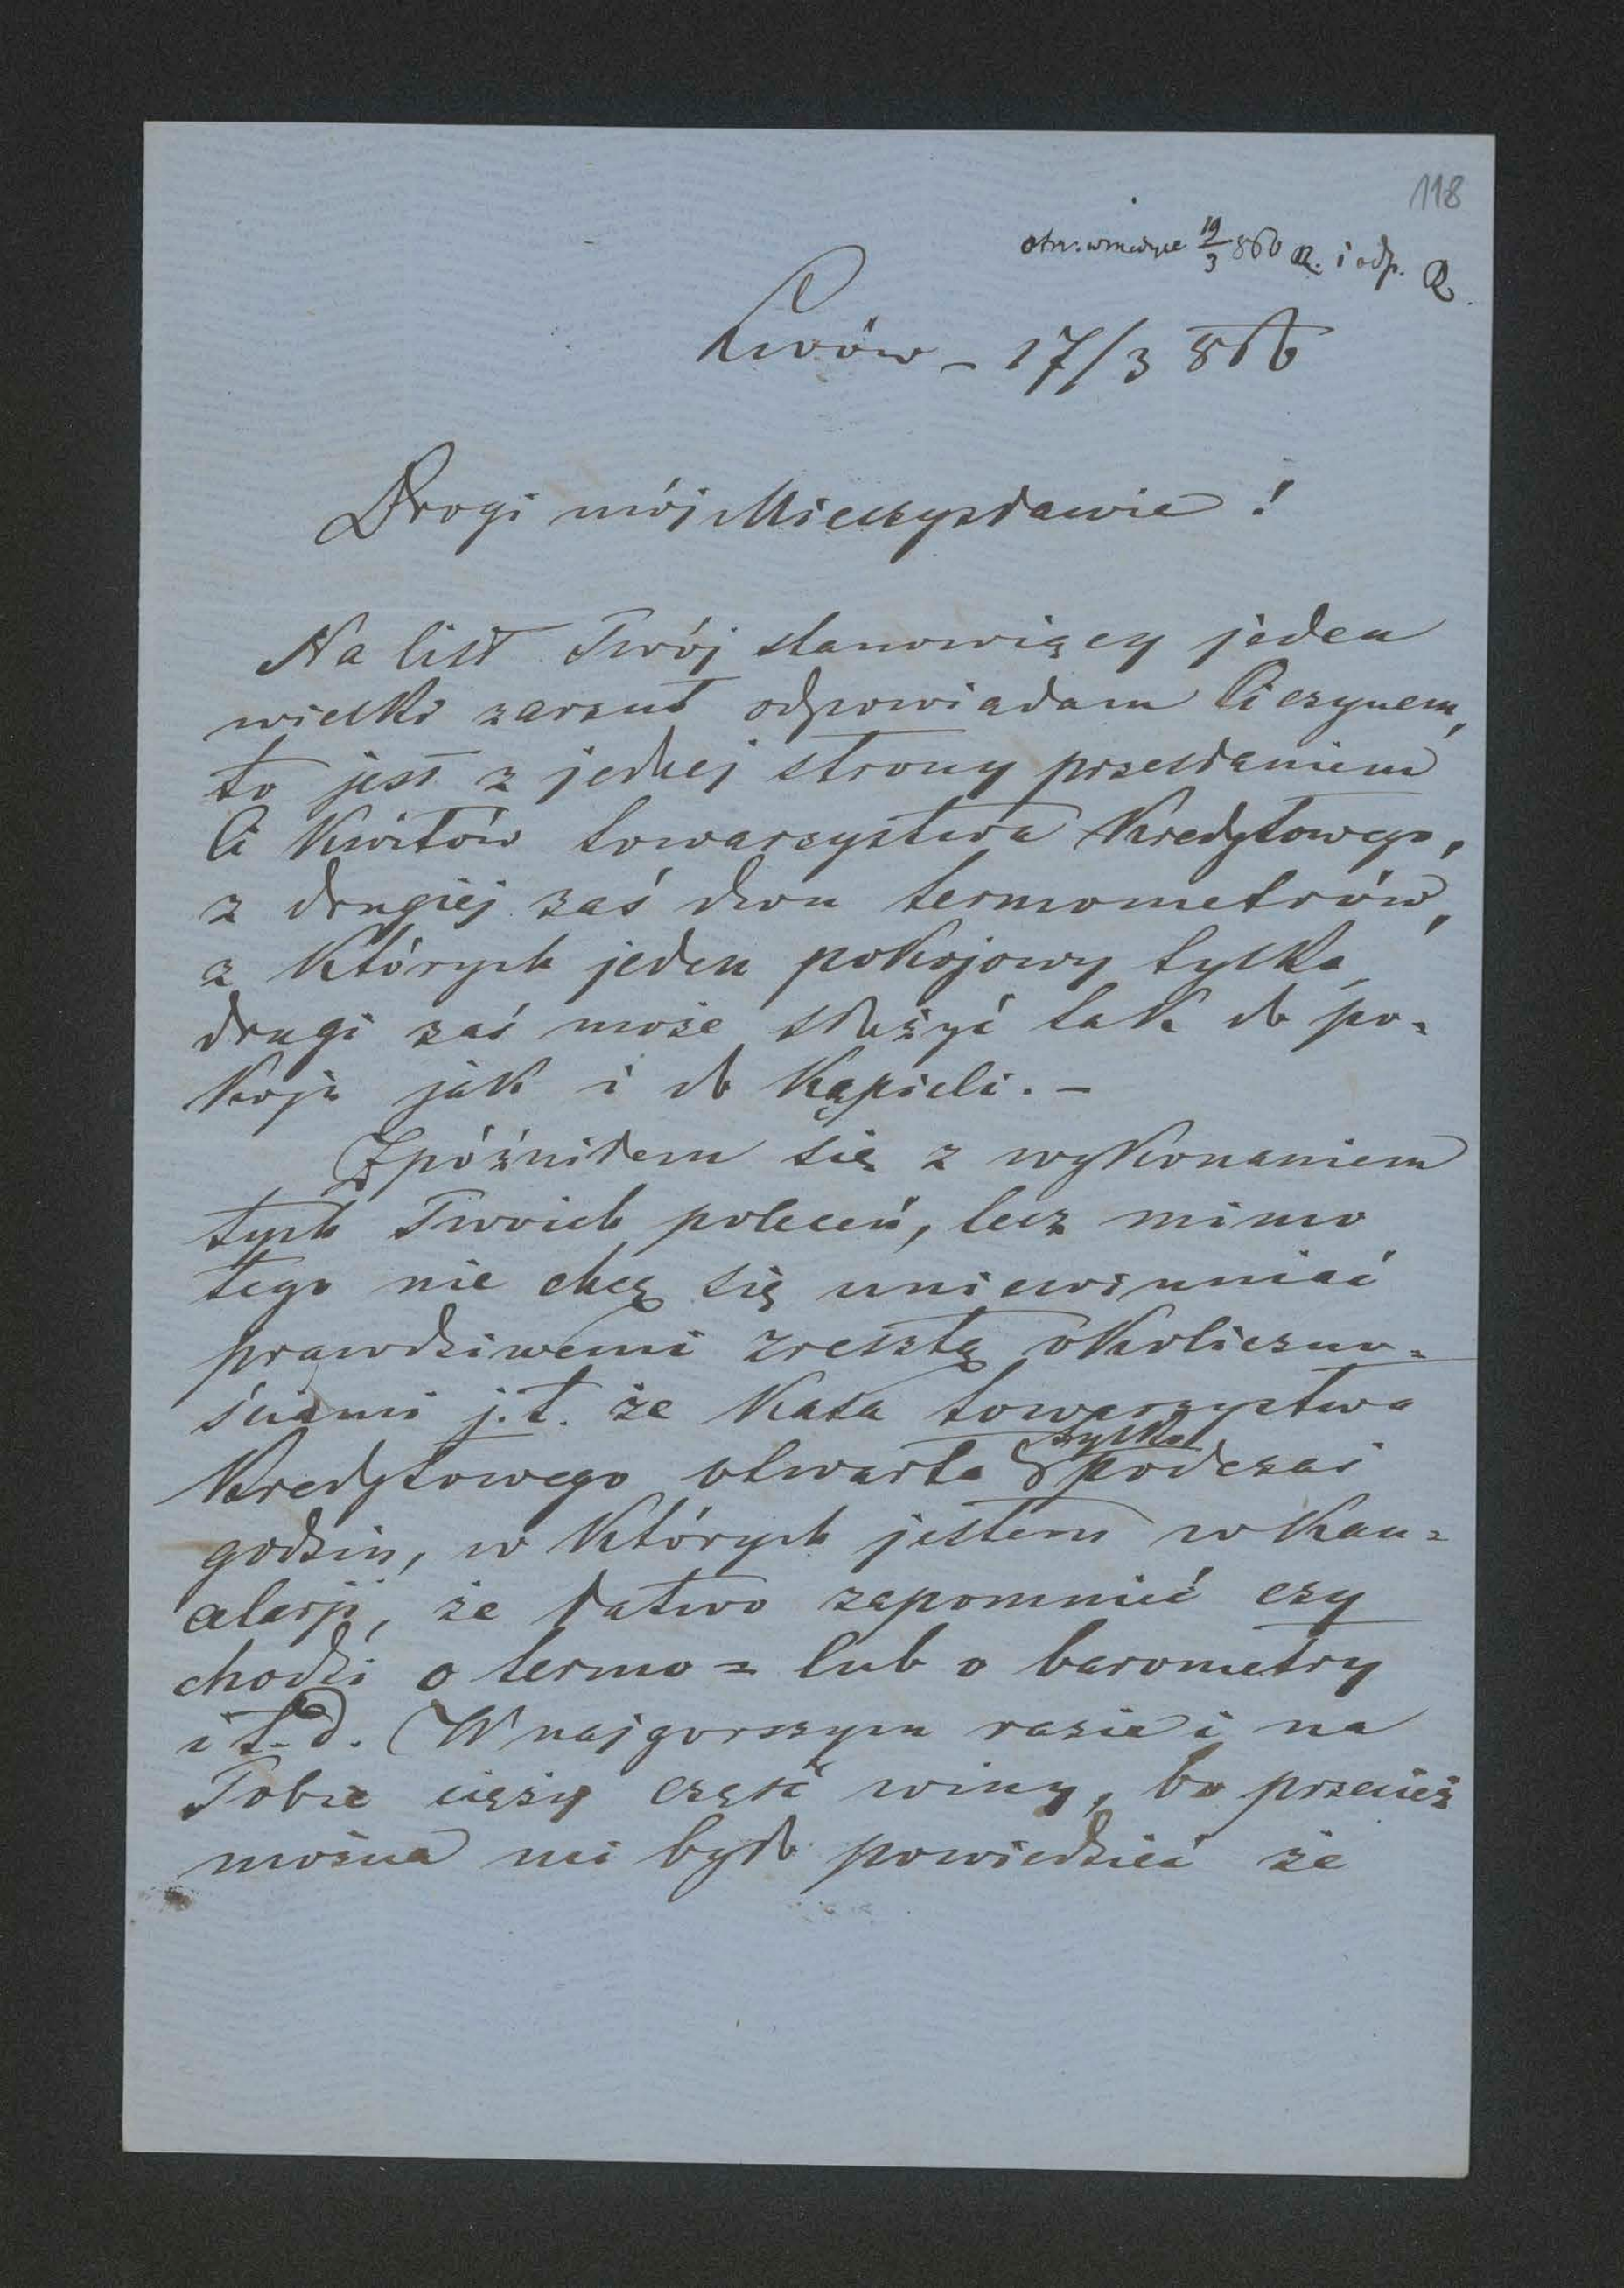 118
otrz. w Medyce 19/3 866 R. i odp. R.
Lwów – 17/3 866
Drogi mój Mieczysławie !
Na list Twój stanowiący jeden
wielki zarzut odpowiadam Ci czynem,
to jest z jednej strony przesłaniem
Ci kwitów towarzystwa Kredytowego,
z drugiej zaś dwu termometrów,
z których jeden pokojowy tylko,
drugi zaś może służyć tak do po=
koju jak i do kąpieli. –
Zpóźniłem się z wykonaniem
tych Twoich poleceń, lecz mimo
tego nie chcę się uniewinniać
prawdziwemi zresztą okoliczno=
ściami j. t. że Kasa towarzystwa
Kredytowego otwarta tylko podczas
godzin, w których jestem w kan=
celarji, że łatwo zapomnieć czy
chodzi o termo= lub o barometry
i t. d. W najgorszym razie i na
Tobie cięży część winy, bo przecież
można mi było powiedzieć że